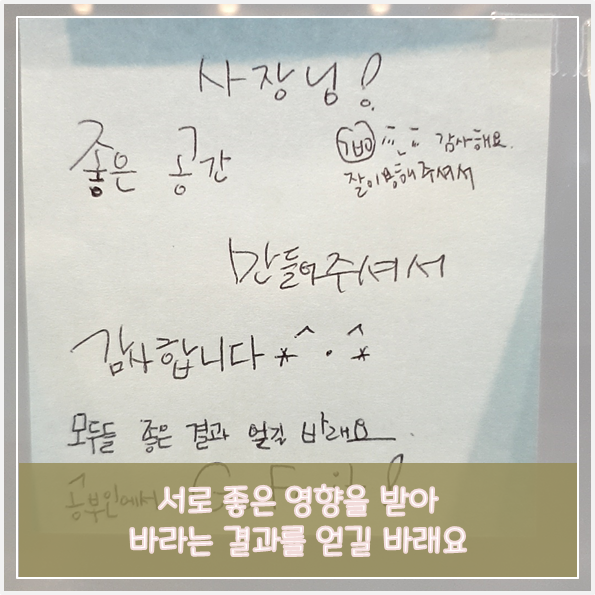 사장님!
좋은 공간
감사해요.
잘이용해주셔서
만들어주셔서
감사합니다 *^.^*
모두들 좋은 결과 얻길 바래요
공부인에서
서로 좋은 영향을 받아
바라는 결과를 얻길 바래요